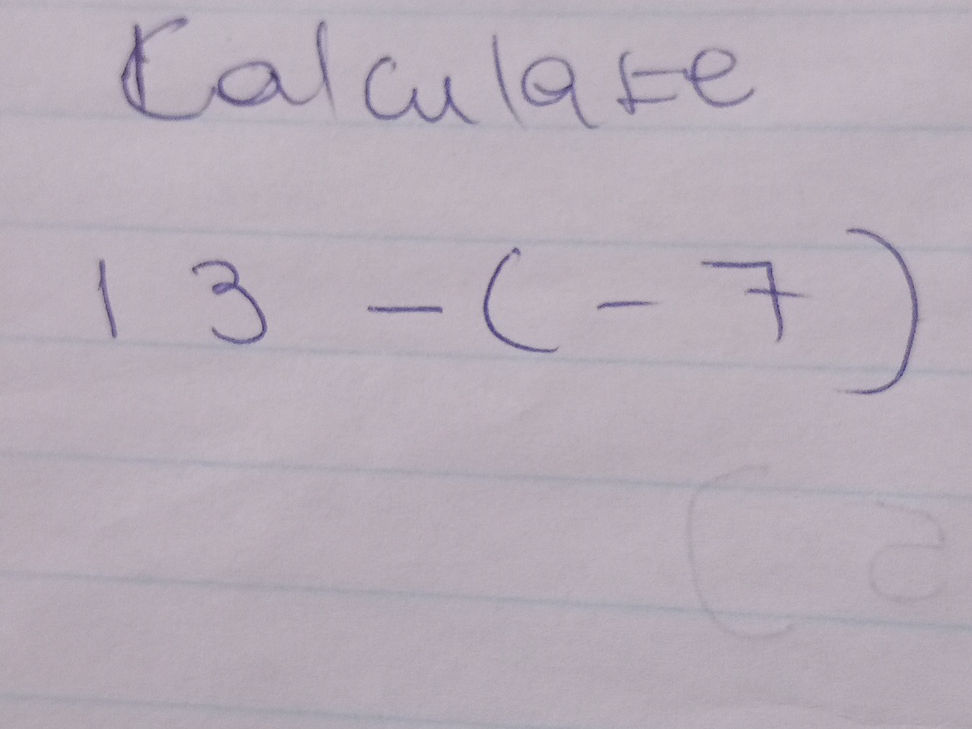 Calculate
13 - (- 7)